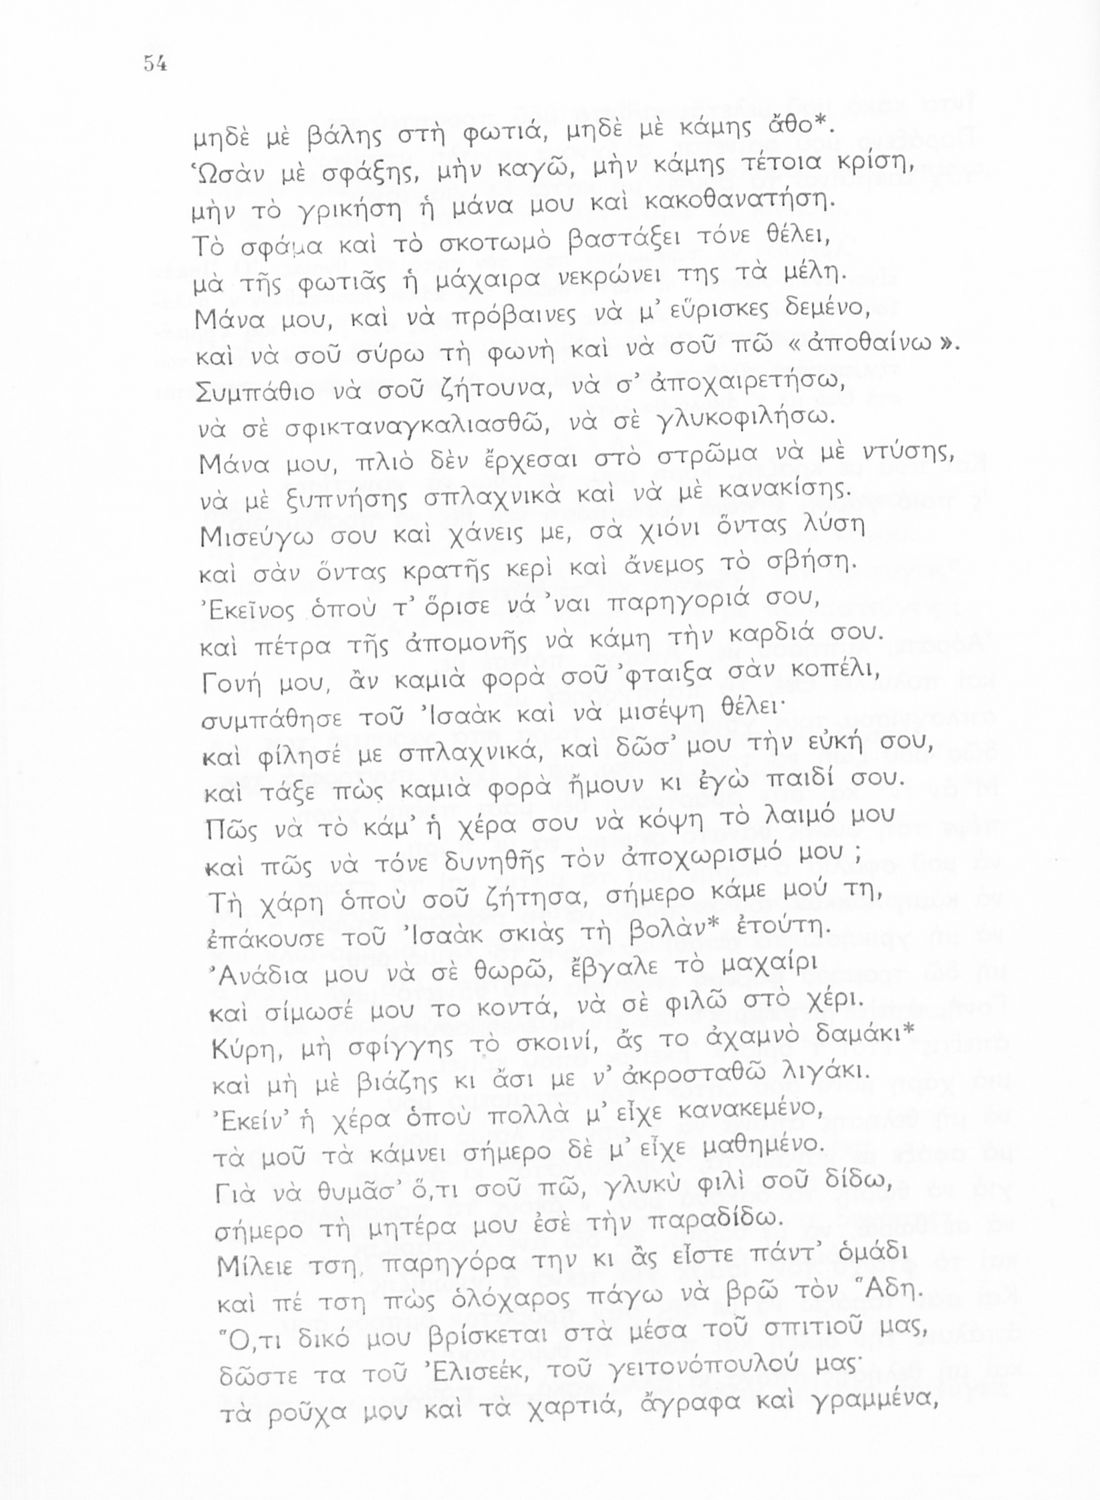 54
μηδὲ μὲ βάλης στὴ φωτιά, μηδὲ μὲ κάμης ἄθο*.
Ὡσὰν μὲ σφάξης, μὴν καγῶ, μὴν κάμης τέτοια κρίση,
μὴν τὸ γρικήση ἡ μάνα μου καὶ κακοθανατήση.
Τὸ σφάμα καὶ τὸ σκοτωμὸ βαστάξει τόνε θέλει,
μὰ τῆς φωτιᾶς ἡ μάχαιρα νεκρώνει της τὰ μέλη.
Μάνα μου, καὶ νὰ πρόβαινες νὰ μ’ εὕρισκες δεμένο,
καὶ νὰ σοῦ σύρω τὴ φωνὴ καὶ νὰ σοῦ πῶ «ἀποθαίνω».
Συμπάθιο νὰ σοῦ ζήτουνα, νὰ σ’ ἀποχαιρετήσω,
νὰ σὲ σφικταναγκαλιασθῶ, νὰ σὲ γλυκοφιλήσω.
Μάνα μου, πλιὸ δὲν ἔρχεσαι στὸ στρῶμα νὰ μὲ ντύσης,
νὰ μὲ ξυπνήσης σπλαχνικὰ καὶ νὰ μὲ κανακίσης.
Μισεύγω σου καὶ χάνεις με, σὰ χιόνι ὅντας λύση
καὶ σὰν ὅντας κρατῆς κερὶ καὶ ἄνεμος τὸ σβήση.
Ἐκεῖνος ὁποὺ τ’ ὅρισε νά ’ναι παρηγοριά σου,
καὶ πέτρα τῆς ἀπομονῆς νὰ κάμη τὴν καρδιά σου.
Γονή μου, ἂν καμιὰ φορὰ σοῦ ’φταιξα σὰν κοπέλι,
συμπάθησε τοῦ Ἰσαὰκ καὶ νὰ μισέψη θέλει·
καὶ φίλησέ με σπλαχνικά, καὶ δῶσ’ μου τὴν εὐκή σου,
καὶ τάξε πὼς καμιὰ φορὰ ἤμουν κι ἐγὼ παιδί σου.
Πῶς νὰ τὸ κάμ’ ἡ χέρα σου νὰ κόψη τὸ λαιμό μου
καὶ πῶς νὰ τόνε δυνηθῆς τὸν ἀποχωρισμό μου ;
Τὴ χάρη ὁποὺ σοῦ ζήτησα, σήμερο κάμε μού τη,
ἐπάκουσε τοῦ Ἰσαὰκ σκιὰς τὴ βολὰν* ἐτούτη.
Ἀνάδια μου νὰ σὲ θωρῶ, ἔβγαλε τὸ μαχαίρι
καὶ σίμωσέ μου το κοντά, νὰ σὲ φιλῶ στὸ χέρι.
Κύρη, μὴ σφίγγης τὸ σκοινί, ἄς το ἀχαμνὸ δαμάκι*
καὶ μὴ μὲ βιάζης κι ἄσι με ν’ ἀκροσταθῶ λιγάκι.
Ἐκείν’ ἡ χέρα ὁποὺ πολλὰ μ’ εἶχε κανακεμένο,
τὰ μοῦ τὰ κάμνει σήμερο δὲ μ’ εἶχε μαθημένο.
Γιὰ νὰ θυμᾶσ’ ὅ,τι σοῦ πῶ, γλυκὺ φιλὶ σοῦ δίδω,
σήμερο τὴ μητέρα μου ἐσὲ τὴν παραδίδω.
Μίλειε τση, παρηγόρα την κι ἂς εἶστε πάντ’ ὁμάδι
καὶ πέ τση πὼς ὁλόχαρος πάγω νὰ βρῶ τὸν Ἅδη.
Ὅ,τι δικό μου βρίσκεται στὰ μέσα τοῦ σπιτιοῦ μας,
δῶστε τα τοῦ Ἐλισεέκ, τοῦ γειτονόπουλού μας·
τὰ ροῦχα μου καὶ τὰ χαρτιά, ἄγραφα καὶ γραμμένα,